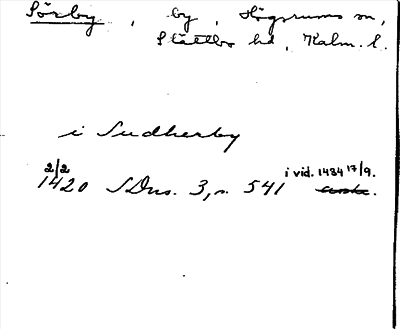 Sörby, by, Högsrums sn,
Slättbo hd, Kalm. l.
i Sudherby
2/2 i vid. 1434 17/9.
1420 SDns. 3, s. 541 avskr.